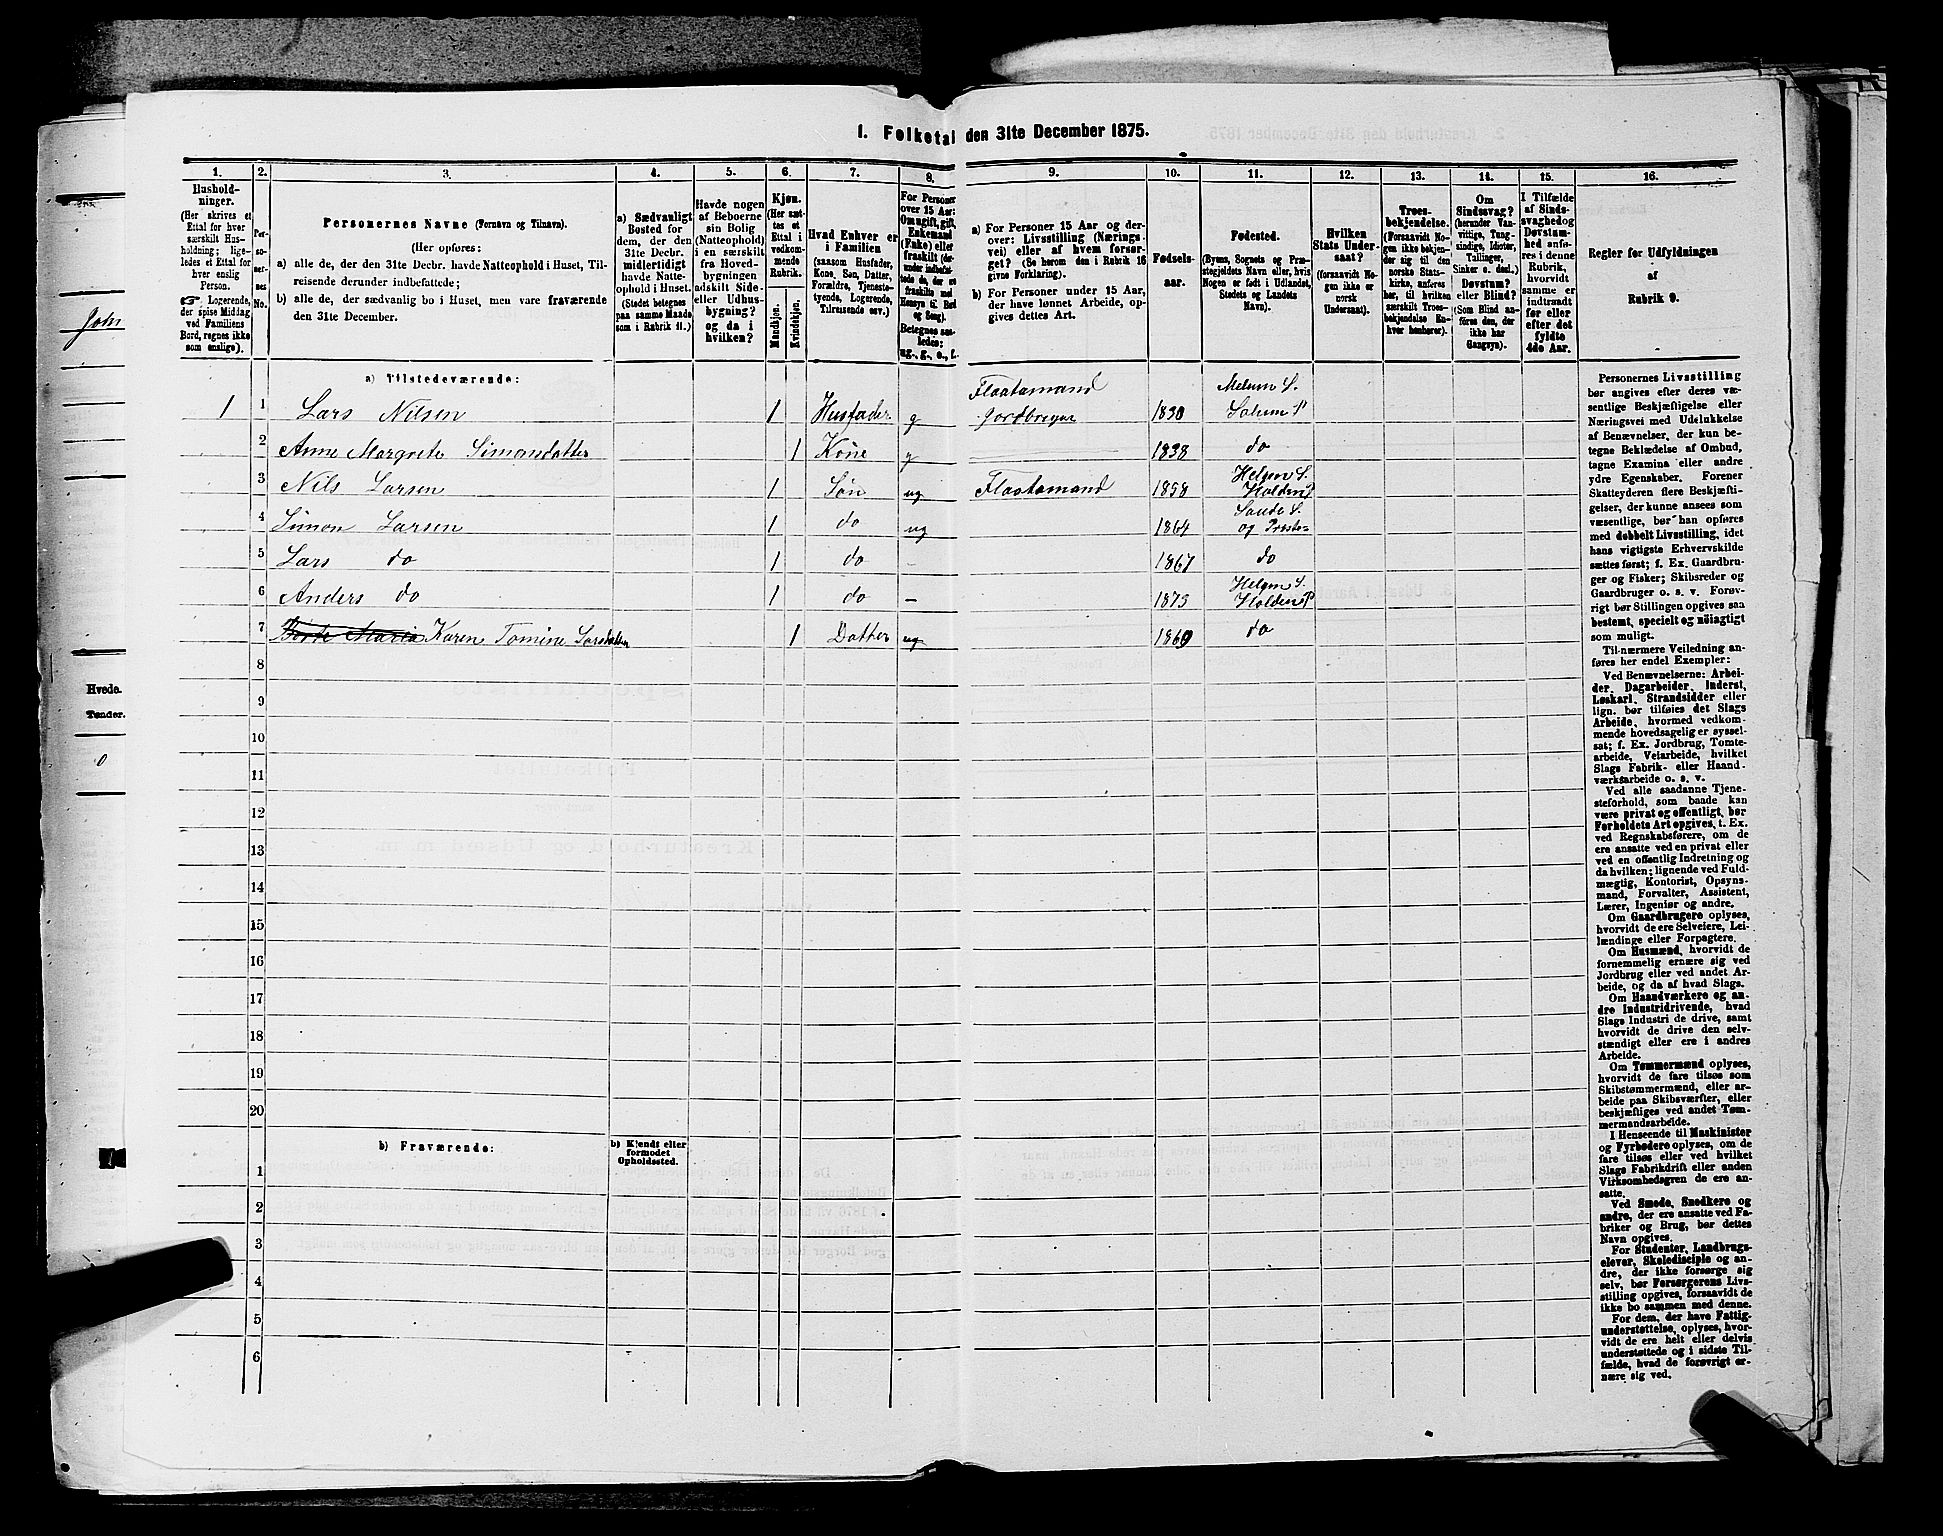 1. Folketal den 31te December 1875.
1.
2.
3.
4.
5.
6.
7.
8.
9.
10.
11.
12.
13.
14.
15.
16.
Hushold-
ninger.
(Her skrives et
Ettal for hver
særskilt Hus-
holdning; lige-
ledes et Ettal for
hver enslig
Person.
☞ Logerende,
der spise Middag
ved Familiens
Bord, regnes ikke
som enslige).
Per-
so-
ner-
nes
No.
Personernes Navne (Fornavn og Tilnavn).
(Her opføres:
a) alle de, der den 31te Decbr. havde Natteophold i Huset, Til-
reisende derunder indbefattede;
b) alle de, der sædvanlig bo i Huset, men vare fraværende
den 31te December.
a) Sædvanligt
Bosted for
dem, der den
31te Decbr.
midlertidigt
havde Natte-
ophold i Huset.
(Stedet betegnes
paa samme Maade
som i Rubrik 11.)
Havde nogen
af Beboerne
sin Bolig
(Natteophold)
i en særskilt
fra Hoved-
bygningen
adskilt Side-
eller Udhus-
bygning?
og da i
hvilken?
Kjøn.
(Her sæt-
tes et
Ettal i
vedkom-
mende
Rubrik.
Mandkjøn.
Kvindekjøn.
Hvad Enhver er
i Familien
(saasom Husfader,
Kone, Søn, Datter,
Forældre, Tjeneste-
tyende, Logerende,
Tilreisende osv.)
For Personer
over 15 Aar:
Om ugift, gift,
Enkemand
(Enke) eller
fraskilt
Betegnes saa-
ledes:
ug., g., e., f.
a) For Personer 15 Aar og der-
over: Livsstilling (Nærings-
vei) eller af hvem forsør-
get? (Se herom den i Rubrik 16
givne Forklaring).
b) For Personer under 15 Aar,
der have lønnet Arbeide, op-
gives dettes Art.
Fødsels-
aar.
Fødested.
(Byens, Sognets og Præ-
stegjeldets Navn eller, hvis
Nogen er født i Udlandet,
Stedets og Landets
Navn).
Hvilken
Stats Under-
saat?
(forsaavidt No-
gen ikke er
norsk
Undersaat).
Troes-
bekjendelse.
(Forsaavidt No-
gen ikke bekjen-
der sig til den
norske Stats-
kirke, anføres
her, til hvilken
særskilt Troes-
bekjendelse En-
hver henhører).
Om
Sindssvag?
(herunder Van-
vittige, Tung-
sindige, Idioter,
Tallinger,
Sinker o. desl.)
Døvstum?
eller Blind?
(Som Blind an-
føres den, der
ikke har
Gangsyn).
I Tilfælde
af Sinds-
svaghed og
Døvstum-
hed anfø-
res i denne
Rubrik,
hvorvidt
samme er
indtraadt
før eller
efter det
fyldte
4de Aar.
Regler for Udfyldningen
af
Rubrik 9.
a) Tilstedeværende:
1 1 Lars Nilsen 1 Husfader g Flaatamand Jordbruger 1830 Melum S. Solum P
2 Anne Margrete Simonsdatter 1 Kone g 1838 do
3 Nils Larsen 1 Søn ug Flaatamand 1858 Helgen S. Holden P
4 Simon Larsen 1 do ug 1864 Saude S. og Præste=
5 Lars do 1 do - 1867 do
6 Anders do 1 do - 1873 Helgen S. Holden P
7 Berte Maria Karen Tomine Larsdatter 1 Datter ug 1860 do
8
9
10
11
12
13
14
15
16
17
18
19
20
b) Fraværende:
b) Kjendt eller
formodet
Opholdssted.
1
2
3
4
5
6
Personernes Livsstilling
bør angives efter deres væ-
sentlige Beskjæftigelse eller
Næringsvei med Udelukkelse
af Benævnelser, der kun be-
tegne Beklædelse af Ombud,
tagne Examina eller andre
ydre Egenskaber. Forener
Skatteyderen flere Beskjæfti-
gelser, der kunne ansees som
væsentlige, bør han opføres
med dobbelt Livsstilling, idet
hans vigtigste Erhvervskilde
sættes først; f. Ex. Gaardbru-
ger og Fisker; Skibsreder og
Gaardbruger o. s. v. Forøv-
rigt bør Stillingen opgives saa
bestemt, specielt og nøiagtigt
som muligt.
Til nærmere Veiledning an-
føres her endel Exempler:
Ved Benævnelserne: Arbei-
der, Dagarbeider, Inderst,
Løskarl, Strandsidder eller
lign. bør tilføies det Slags
Arbeide, hvormed vedkom-
mende hovedsagelig er syssel-
sat; f. Ex. Jordbrug, Tomte-
arbeide, Veiarbeide, hvilket
Slags Fabrik- eller Haand-
værksarbeide o. s. v.
Ved alle saadanne Tjene-
steforhold, som baade kan
være privat og offentligt, bør
Forholdets Art opgives, t. Ex.
ved Regnskabsførere, om de
ere ansatte ved en privat eller
ved en offentlig Indretning og
da hvilken; lignende ved Fuld-
mægtig, Kontorist, Opsyns-
mand, Forvalter, Assistent,
Lærer, Ingeniør og andre.
Om Gaardbrugere oplyses,
hvorvidt de ere Selveiere, Lei-
lændinge eller Forpagtere.
Om Husmænd, hvorvidt de
fornemmelig ernære sig ved
Jordbrug eller ved andet Ar-
beide, og da af hvad Slags.
Om Haandværkere og an-
dre Industridrivende, hvad
Slags Industri de drive, samt
hvorvidt de drive den selv-
stændigt eller ere i andres
Arbeide.
Om Tømmermænd oplyses,
hvorvidt de fare tilsøs som
Skibstømmermænd, eller ar-
beide paa Skibsværfter, eller
beskjæftiges ved andet Tøm-
mermandsarbeide.
I Henseende til Maskinister
og Fyrbødere oplyses, om de
fare tilsøs eller ved hvilket
Slags Fabrikdrift eller anden
Virksomhedsgren de ere an-
satte.
Ved Smede, Snedkere og
andre, der ere ansatte ved Fa-
briker og Brug, bør dettes
Navn opgives.
For Studenter, Landbrugs-
elever, Skoledisciple og an-
dre, der ikke forsørge sig
selv, bør Forsørgerens Livs-
stilling opgives, forsaavidt de
ikke bo sammen med denne.
For dem, der have Fattig-
understøttelse, oplyses, hvor-
vidt de ere helt eller delvis
understøttede og i sidste Til-
fælde, hvad de forøvrigt er-
nære sig ved.
Hvede.
Tønder.
0